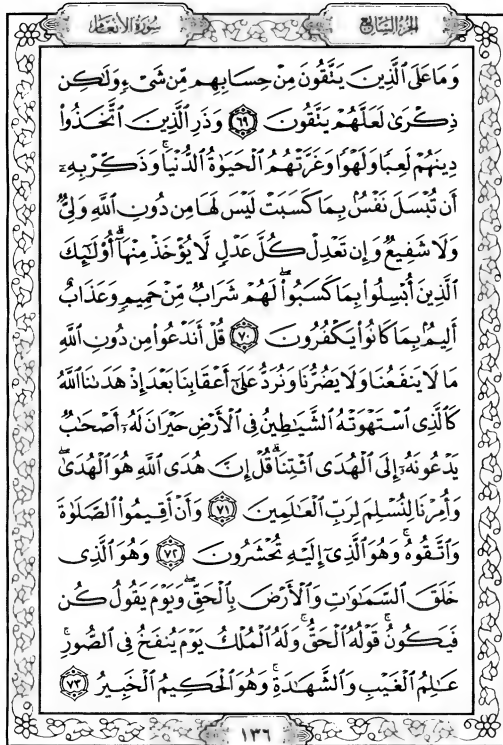 سُورَةُ الأَنْعَام الجُزْءُ السَّابِعُ
وَمَا عَلَى ٱلَّذِينَ يَتَّقُونَ مِنْ حِسَابِهِم مِّن شَىْءٍ وَلَٰكِن
ذِكْرَىٰ لَعَلَّهُمْ يَتَّقُونَ ٦٩ وَذَرِ ٱلَّذِينَ ٱتَّخَذُوا۟
دِينَهُمْ لَعِبًا وَلَهْوًا وَغَرَّتْهُمُ ٱلْحَيَوٰةُ ٱلدُّنْيَا ۚ وَذَكِّرْ بِهِۦٓ
أَن تُبْسَلَ نَفْسٌۢ بِمَا كَسَبَتْ لَيْسَ لَهَا مِن دُونِ ٱللَّهِ وَلِىٌّ
وَلَا شَفِيعٌ وَإِن تَعْدِلْ كُلَّ عَدْلٍ لَّا يُؤْخَذْ مِنْهَآ ۗ أُو۟لَٰٓئِكَ
ٱلَّذِينَ أُبْسِلُوا۟ بِمَا كَسَبُوا۟ ۖ لَهُمْ شَرَابٌ مِّنْ حَمِيمٍ وَعَذَابٌ
أَلِيمٌۢ بِمَا كَانُوا۟ يَكْفُرُونَ ٧٠ قُلْ أَنَدْعُوا۟ مِن دُونِ ٱللَّهِ
مَا لَا يَنفَعُنَا وَلَا يَضُرُّنَا وَنُرَدُّ عَلَىٰٓ أَعْقَابِنَا بَعْدَ إِذْ هَدَىٰنَا ٱللَّهُ
كَٱلَّذِى ٱسْتَهْوَتْهُ ٱلشَّيَٰطِينُ فِى ٱلْأَرْضِ حَيْرَانَ لَهُۥٓ أَصْحَٰبٌ
يَدْعُونَهُۥٓ إِلَى ٱلْهُدَى ٱئْتِنَا ۗ قُلْ إِنَّ هُدَى ٱللَّهِ هُوَ ٱلْهُدَىٰ ۖ
وَأُمِرْنَا لِنُسْلِمَ لِرَبِّ ٱلْعَٰلَمِينَ ٧١ وَأَنْ أَقِيمُوا۟ ٱلصَّلَوٰةَ
وَٱتَّقُوهُ ۚ وَهُوَ ٱلَّذِىٓ إِلَيْهِ تُحْشَرُونَ ٧٢ وَهُوَ ٱلَّذِى
خَلَقَ ٱلسَّمَٰوَٰتِ وَٱلْأَرْضَ بِٱلْحَقِّ ۖ وَيَوْمَ يَقُولُ كُن
فَيَكُونُ ۚ قَوْلُهُ ٱلْحَقُّ ۚ وَلَهُ ٱلْمُلْكُ يَوْمَ يُنفَخُ فِى ٱلصُّورِ ۚ
عَٰلِمُ ٱلْغَيْبِ وَٱلشَّهَٰدَةِ ۚ وَهُوَ ٱلْحَكِيمُ ٱلْخَبِيرُ ٧٣
١٣٦